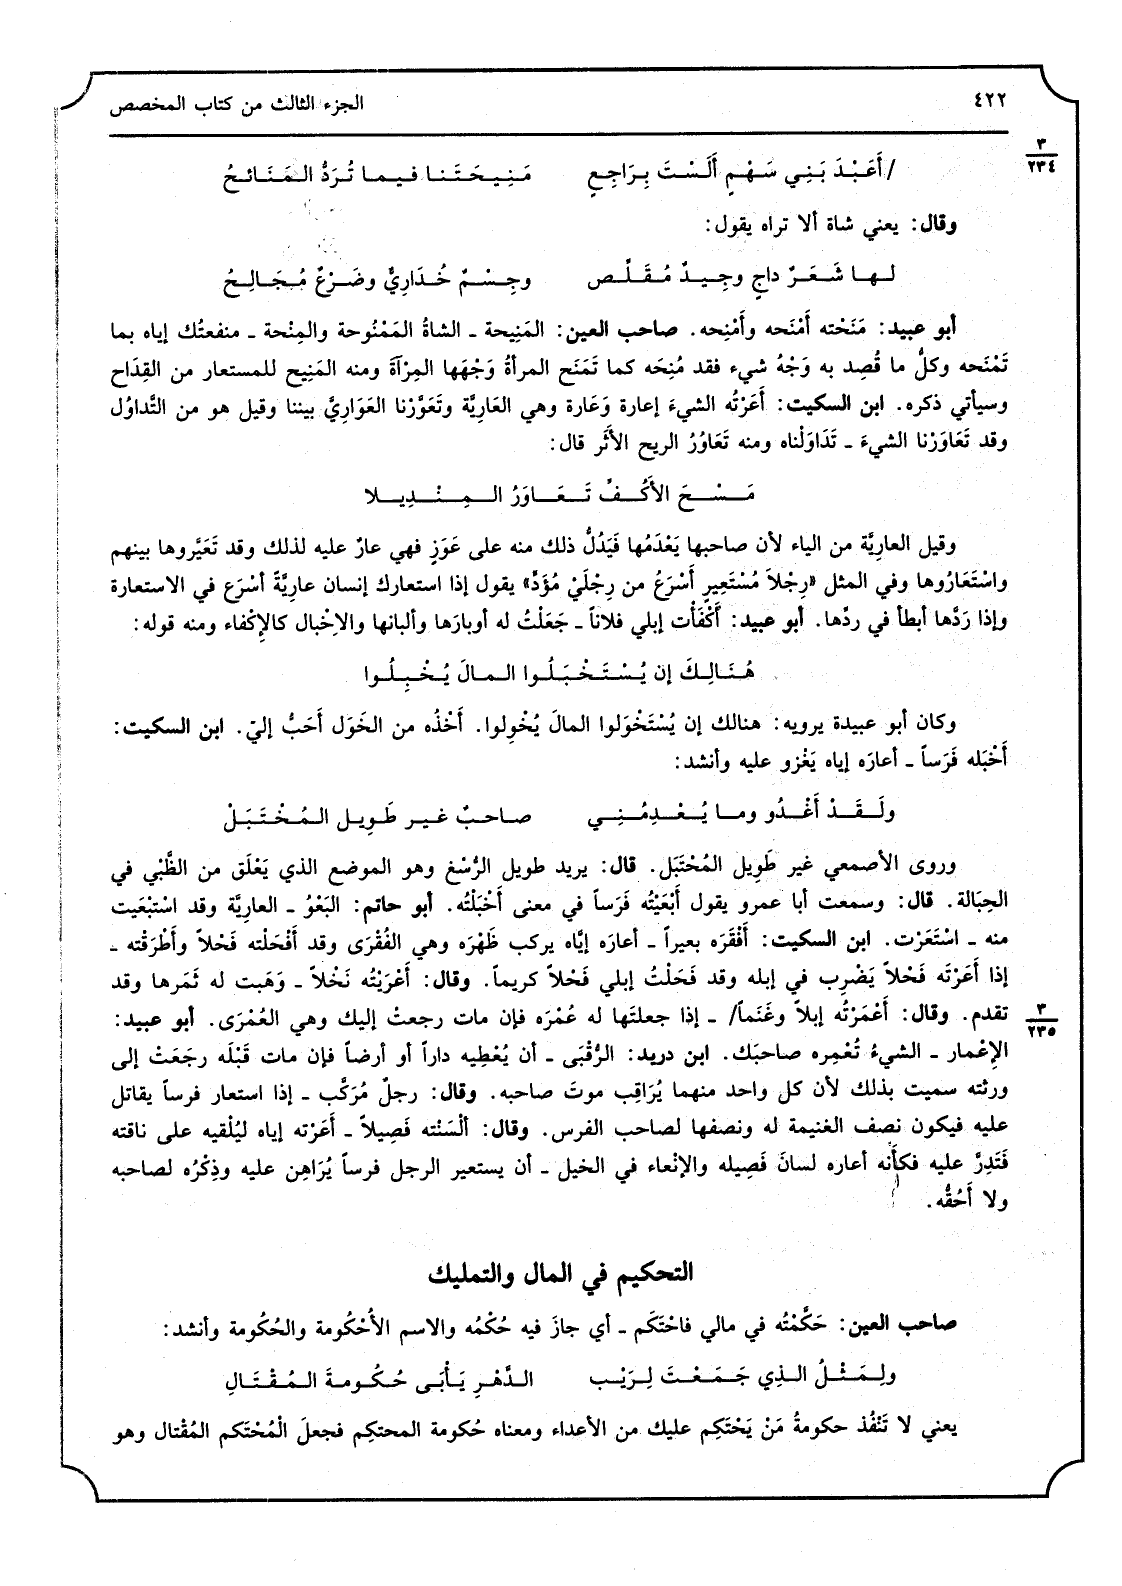 ٤٢٢ الجزء الثالث من كتاب المخصص
٣
٢٣٤
/أَعَبْدَ بَنِي سَهْمٍ أَلَسْتَ بِرَاجِعٍ مَنِيحَتَنا فيما تُرَدُّ المَنَائحُ
وقال: يعني شاة ألا تراه يقول:
لها شَعَرٌ داجٍ وجِيدٌ مُقَلِّص وجِسْمٌ خُدَارِيٌّ وضَرْعٌ مُجَالِحُ
أبو عبيد: مَنَحْته أَمْنَحه وأَمْنِحه. صاحب العين: المَنِيحة ـ الشاةُ المَمْنُوحة والمِنْحة ـ منفعتُك إياه بما
تَمْنَحه وكلُّ ما قُصِد به وَجْهُ شيء فقد مُنِحَه كما تَمَنَح المرأةُ وَجْهَها المِرْآةَ ومنه المَنِيح للمستعار من القِدَاح
وسيأتي ذكره. ابن السكيت: أَعَرْتُه الشيءَ إعارة وَعَارة وهي العَاريَّة وتَعَوَّرْنا العَوَاريَّ بيننا وقيل هو من التَّداوُل
وقد تَعَاوَرْنا الشيءَ ـ تَدَاوَلْناه ومنه تَعَاوُرُ الريح الأَثَر قال:
مَسْحَ الأَكُفِّ تَعَاوَرُ المِنْدِيلا
وقيل العاريَّة من الياء لأن صاحبها يَعْدَمُها فَيَدُلُّ ذلك منه على عَوَزٍ فهي عارٌ عليه لذلك وقد تَعَيَّروها بينهم
واسْتَعَارُوها وفي المثل «رِجْلاَ مُسْتَعِيرٍ أَسْرَعُ من رِجْلَيْ مُؤَدٍّ» يقول إذا استعارك إنسان عاريَّةً أسْرَع في الاستعارة
وإذا رَدَّها أبطأ في ردِّها. أبو عبيد: أَكْفَأْت إبلي فلاناً ـ جَعَلْتُ له أوبارَها وألبانها والاِخْبال كالإِكْفاء ومنه قوله:
هُنَالِكَ إن يُسْتَخْبَلُوا المالَ يُخْبِلُوا
وكان أبو عبيدة يرويه: هنالك إن يُسْتَخْوَلوا المالَ يُخْوِلوا. أَخْذُه من الخَوَل أَحَبُّ إليّ. ابن السكيت:
أَخْبَله فَرَساً ـ أعارَه إياه يَغْزو عليه وأنشد:
ولَقَدْ أَغْدُو وما يُعْدِمُنِي صاحبٌ غير طَوِيل المُخْتَبَلْ
وروى الأصمعي غير طَوِيل المُحْتَبَل. قال: يريد طويل الرُّسْغ وهو الموضع الذي يَعْلَق من الظَّبْي في
الحِبَالة. قال: وسمعت أبا عمرو يقول أَبْعَيْتُه فَرَساً في معنى أَخْبَلْتُه. أبو حاتم: البَعْوُ ـ العاريَّة وقد اسْتَبْعَيت
منه ـ اسْتَعَرْت. ابن السكيت: أَفْقَرَه بعيراً ـ أعارَه إيَّاه يركب ظَهْرَه وهي الفُقْرَى وقد أَفْحَلْته فَحْلاً وأَطْرَقْته ـ
إذا أَعَرْتَه فَحْلاً يَضْرِب في إبله وقد فَحَلْتُ إبلي فَحْلاً كريماً. وقال: أَعْرَيْتُه نَخْلاً ـ وَهَبت له ثَمَرها وقد
تقدم. وقال: أَعْمَرْتُه إبلاً وغَنَماً/ ـ إذا جعلتَها له عُمْرَه فإن مات رجعتْ إليك وهي العُمْرَى. أبو عبيد:
٣
٢٣٥
الإعْمار ـ الشيءُ تُعْمِره صاحبَك. ابن دريد: الرُّقْبَى ـ أن يُعْطِيه داراً أو أرضاً فإن مات قَبْلَه رجَعَتْ إلى
ورثته سميت بذلك لأن كل واحد منهما يُرَاقِب موتَ صاحبه. وقال: رجلٌ مُرَكَّب ـ إذا استعار فرساً يقاتل
عليه فيكون نصف الغنيمة له ونصفها لصاحب الفرس. وقال: أَلْسَنْته فَصِيلاً ـ أَعَرْته إياه ليُلْقيه على ناقته
فَتَدِرَّ عليه فكأنه أعاره لسانَ فَصِيله والإنْعاء في الخيل ـ أن يستعير الرجل فرساً يُرَاهِن عليه وذِكْرُه لصاحبه
ولا أَحُقُّه.
التحكيم في المال والتمليك
صاحب العين: حَكَّمْتُه في مالي فاحْتَكَم ـ أي جازَ فيه حُكْمُه والاسم الأُحْكُومة والحُكُومة وأنشد:
ولِمَثْلُ الذِي جَمَعْتَ لِرَيْبِ الدَّهْرِ يَأْبَى حُكُومةَ المُقْتَالِ
يعني لا تَنْفُذ حكومةُ مَنْ يَحْتَكِم عليك من الأعداء ومعناه حُكومة المحتكِم فجعلَ الْمُحْتَكم المُقْتال وهو